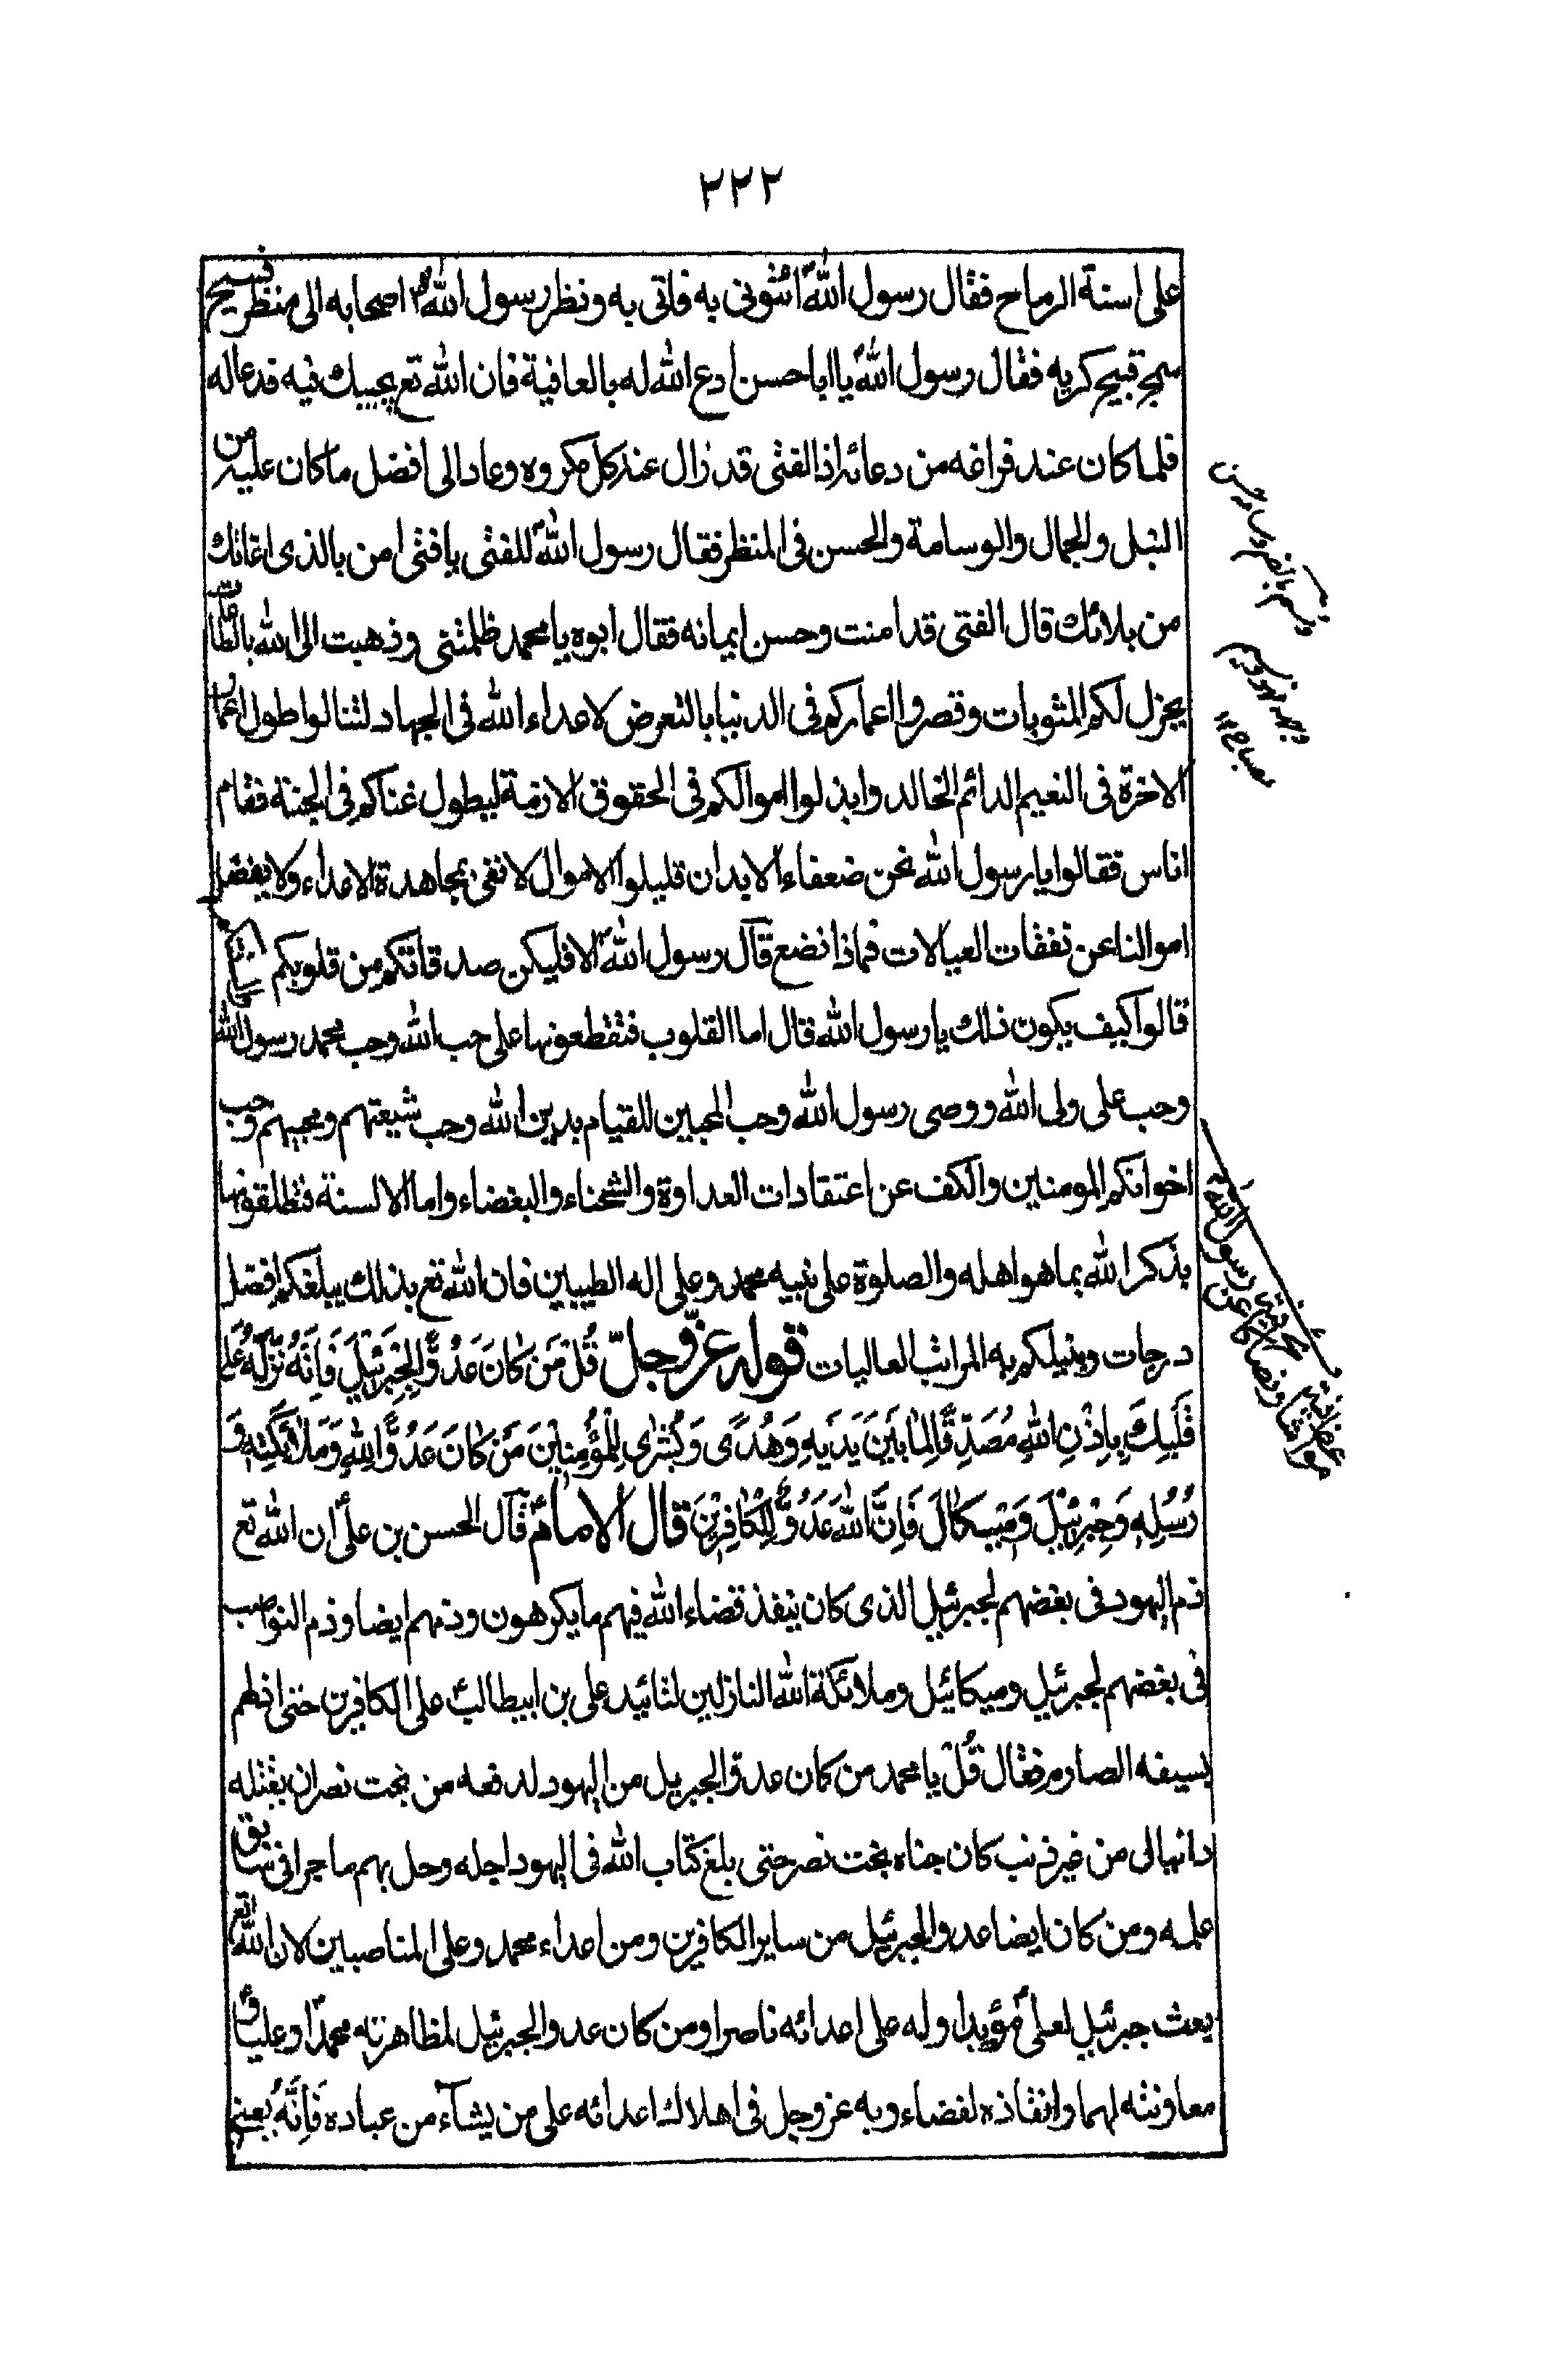 ٢٢٢
على اسنة الرماح فقال رسول اللهؐ ائتونى به فاتى به ونظر رسول اللهؐ و اصحابه الى منظر فسيح
سمج قبيح كريه فقال رسول اللهؐ يا ابا حسن ادع الله له بالعافية فان الله تع يجيبك فيه فدعا له
فلما كان عند فراغه من دعائه اذ الفتى قد زال عنه كل مكروه وعاد الى افضل ما كان عليه من
النبل والجمال والوسامة والحسن فى المنظر فقال رسول اللهؐ للفتى يا فتى امن بالذى اغاثك
من بلائك قال الفتى قد امنت وحسن ايمانه فقال ابوه يا محمد ظلمتنى وذهبت
يجزل لكم المثوبات وقصروا اعماركم فى الدنيا بالتعرض لاعداء الله فى الجهاد لتنالوا طول اعمار
الاخرة فى النعيم الدائم الخالد وابذلوا اموالكم فى الحقوق الازمة ليطول غناكم فى الجنة فقام
اناس فقالوا يا رسول الله نحن ضعفاء الابدان قليلوا الاموال لا نفى بمجاهدة الاعداء ولا يفضل
اموالنا عن نفقات العيالات فماذا نضع قال رسول اللهؐ الا فليكن صدقاتكم من قلوبكم
قالوا كيف يكون ذلك يا رسول الله قال اما القلوب فتقطعونها على حب الله وحب محمد رسول الله
وحب على ولى الله ووصى رسول الله وحب المحبين للقيام بدين الله وحب شيعتهم ومحبيهم وحب
اخوانكم المومنين والكف عن اعتقادات العداوة والشحناء والبغضاء واما الالسنة فتطلقونها
بذكر الله بما هو اهله والصلوة على نبيه محمد وعلى اله الطيبين فان الله تع بذلك يبلغكم افضل
درجات وينيلكم به المراتب العاليات قوله عزّ وجلّ قُلْ مَن كَانَ عَدُوًّا لِجِبْرَئِيلَ فَاِنَّهُ نَزَّلَهُ عَلى
قَلْبِكَ بِاِذْنِ اللهِ مُصَدِّقًا لِمَا بَيْنَ يَدَيهِ وَهُدًى وَبُشْرٰى لِلْمُؤْمِنِيْنَ مَنْ كَانَ عَدُوًّا لِلهِ وَمَلائِكَتِهِ وَ
رُسُلِهِ وَجِبْرِئِيْلَ وَمِيْكَالَ فَاِنَّ اللهَ عَدُوٌّ لِلْكَافِرِيْنَ قال الامامؑ قال الحسن بن علىؑ ان الله تع
ذم اليهود فى بغضهم لجبرئيل الذى كان ينفذ قضاء الله فيهم ما يكرهون وذمهم ايضا وذم النواصب
فى بغضهم لجبرئيل وميكائيل وملائكة الله النازلين لتائيد على بن ابيطالبؑ على الكافرين حتى اذلهم
بسيفه الصارم فقال قُلْ يا محمد من كان عدوا لجبريل من اليهود لدفعه من بخت نصر ان يقتله
دانيال من غير ذنب كان جناه بخت نصر حتى بلغ كتاب الله فى اليهود اجله وحل بهم ما جرا فى سابق
علمه ومن كان ايضا عدوا لجبرئيل من ساير الكافرين ومن اعداء محمد وعلى المناصبين لان الله تع
بعث جبرئيل لعلىؑ مؤيدا وله على اعدائه ناصرا ومن كان عدوا لجبرئيل لمظاهرته محمدا وعليا و
معاونته لهما وانفاذه لقضاء ربه عز وجل فى اهلاك اعدائه على من يشاء من عباده فَاِنَّهُ يعنى